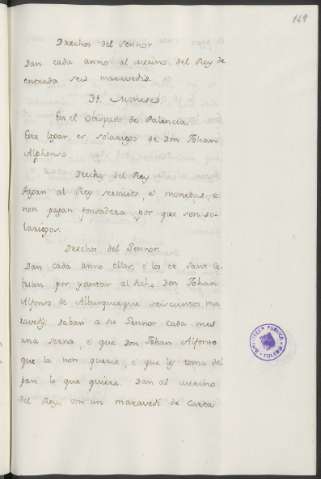 169
Drechos del Sennor
Dan cada anno al merino del Rey de
entrada seis maravedis
34. Moneses
En el Obispado de Palencia
Este logar es solariego de Don Johan
Alphonso
Drechos del Rey
Pagan al Rey servicio, e monedas, e
non pagan fonsadera por que son so-
lariegos.
Drechos del Sennor
Dan cada anno ellos, e los de Sant Ce-
brian por yantar al Don Johan
Alfonso de Alburquerque seiscientos ma
ravedis daban a su Sennor cada mes
una serna, e que Don Johan Alfonso
que la non queria, e que les toma del
pan lo que quiere. Dan al merino
del Rey un maravedi de Carta
BIBLIOTECA PUBLICA
TOLEDO